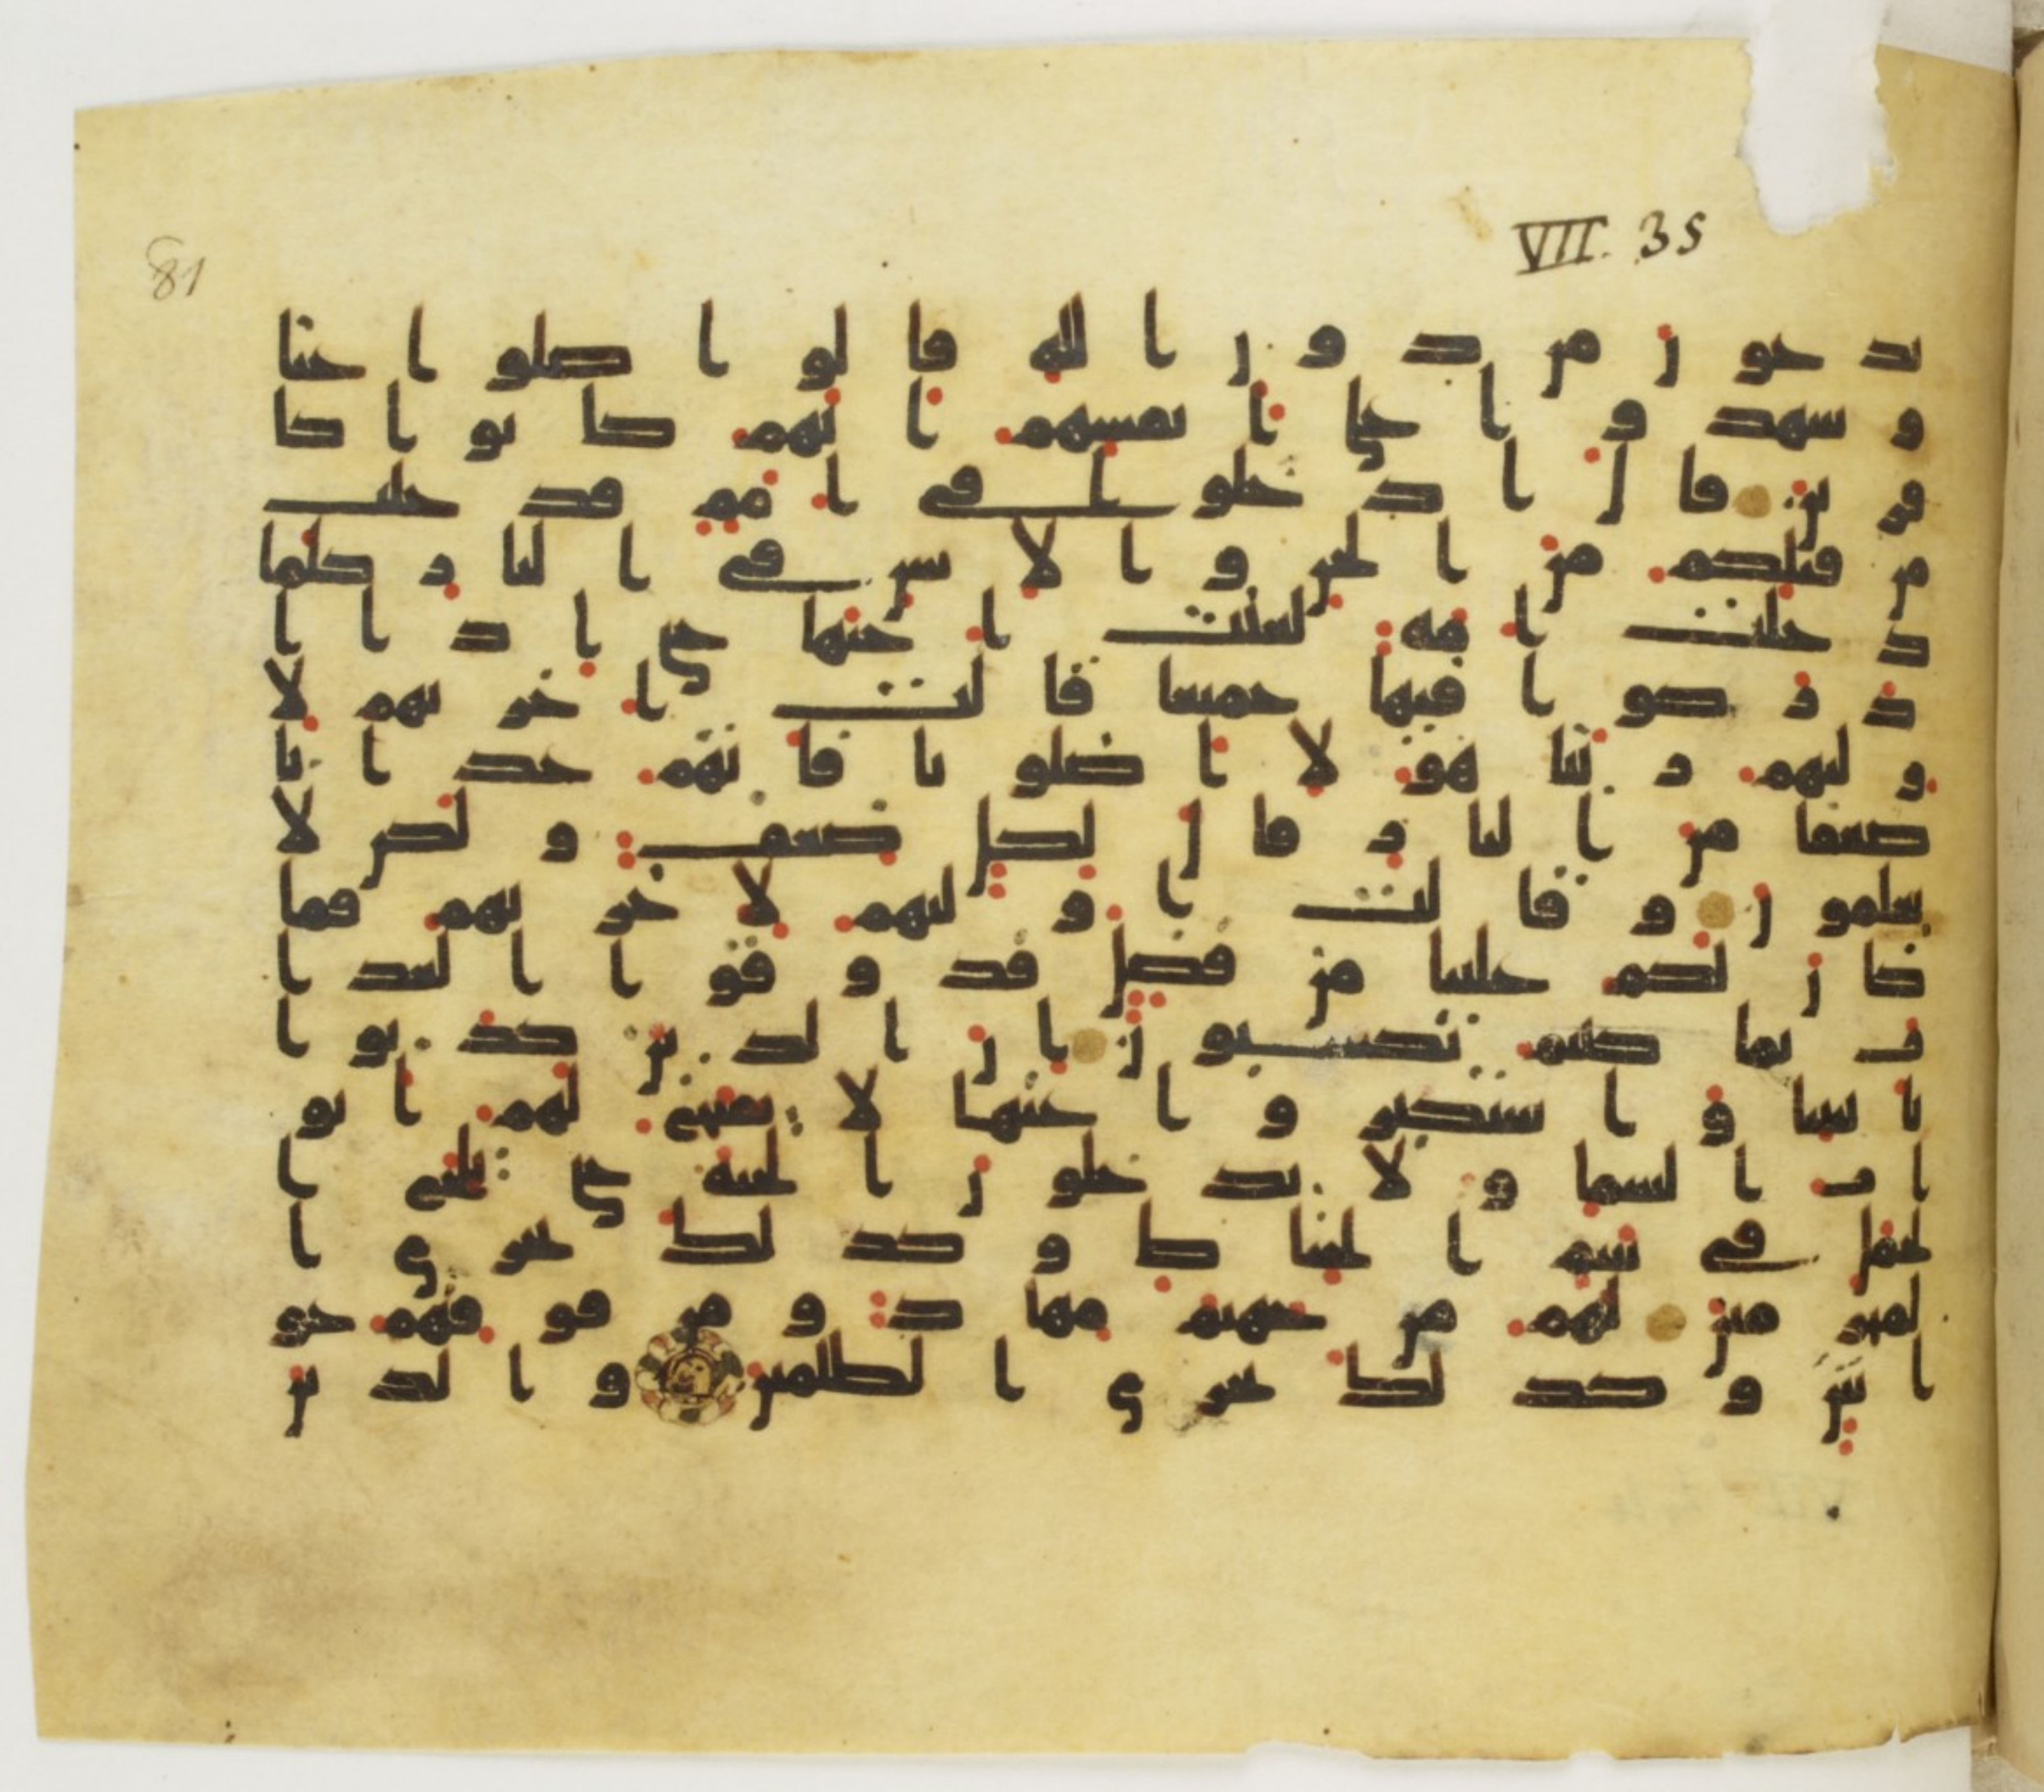 81
VII. 35
تدعون من دون الله قالوا ضلوا عنا
وشهدوا على أنفسهم أنهم كانوا كا
فرين قال ادخلوا في أمم قد خلت
من قبلكم من الجن والإنس في النار كلما
دخلت أمة لعنت أختها حتى إذا ا
داركوا فيها جميعا قالت أخريهم لا
وليهم ربنا هؤلا أضلونا فاتهم عذابا
ضعفا من النار قال لكل ضعف ولكن لا
تعلمون وقالت أوليهم لأخريهم فما
كان لكم علينا من فضل فذوقوا العذا
ب بما كنتم تكسبون إن الذين كذبوا
بايتنا واستكبروا عنها لا تفتح لهم أبو
اب السما ولا يدخلون الجنة حتى يلج ا
لجمل في سم الخياط وكذلك نجزي ا
لمجرمين لهم من جهنم مهاد ومن فوقهم غو
اش وكذلك نجزي الظلمين والذين